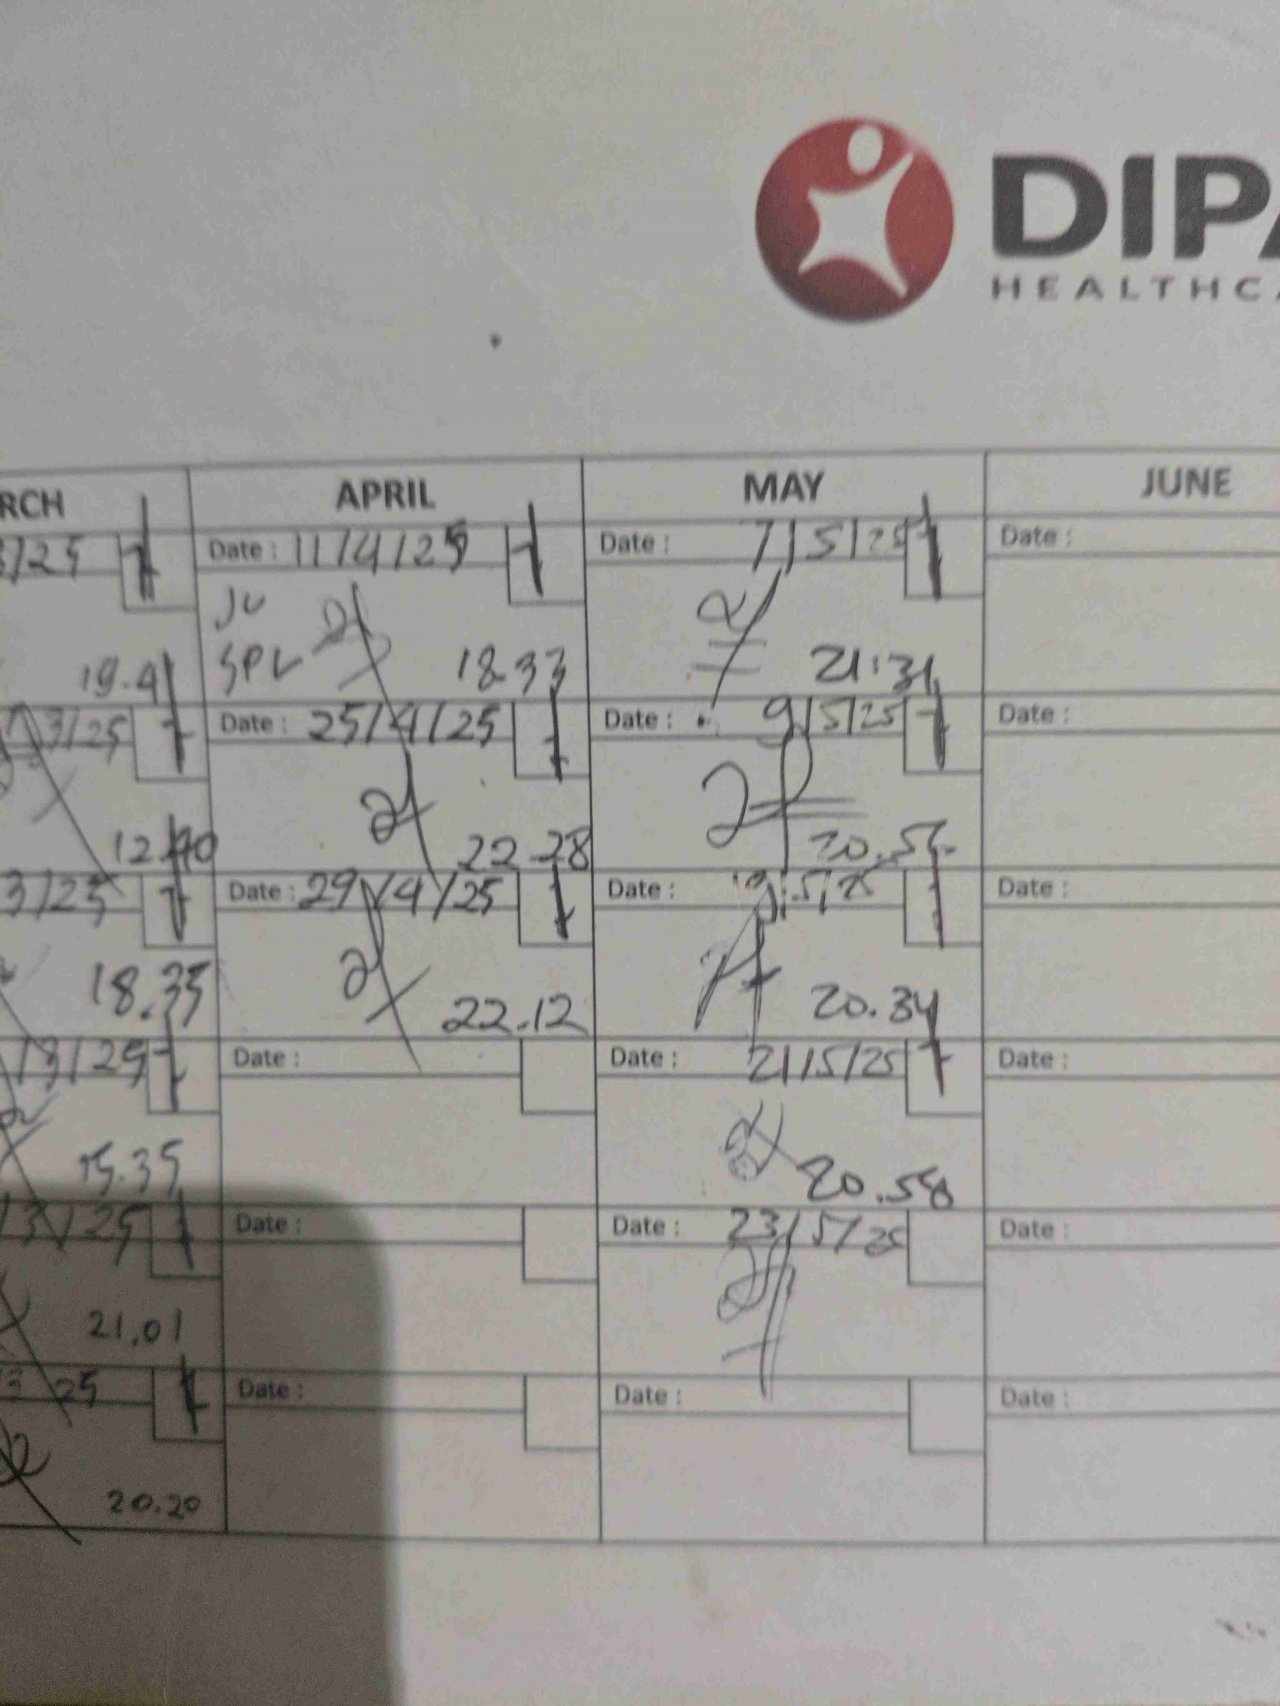 DIPA
HEALTHCA
RCH APRIL MAY JUNE
3/25 Date : 11/4/25 Date : 7/5/25 Date :
JU
SPV
19.41 18.33 21:31
3/25 Date : 25/4/25 Date : 9/5/25 Date :
12.40 22.28
3/25 Date : 29/4/25 Date : Date :
18.35 22.12 20.34
/3/25 Date : Date : 21/5/25 Date :
15.35 20.58
/3/25 Date : Date : 23/5/25 Date :
21.01
25 Date : Date : Date :
20.20